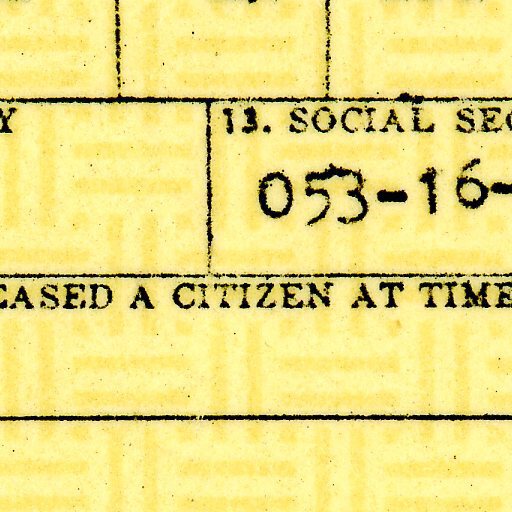 Y
13. SOCIAL SEC
053-16-
EASED A CITIZEN AT TIME